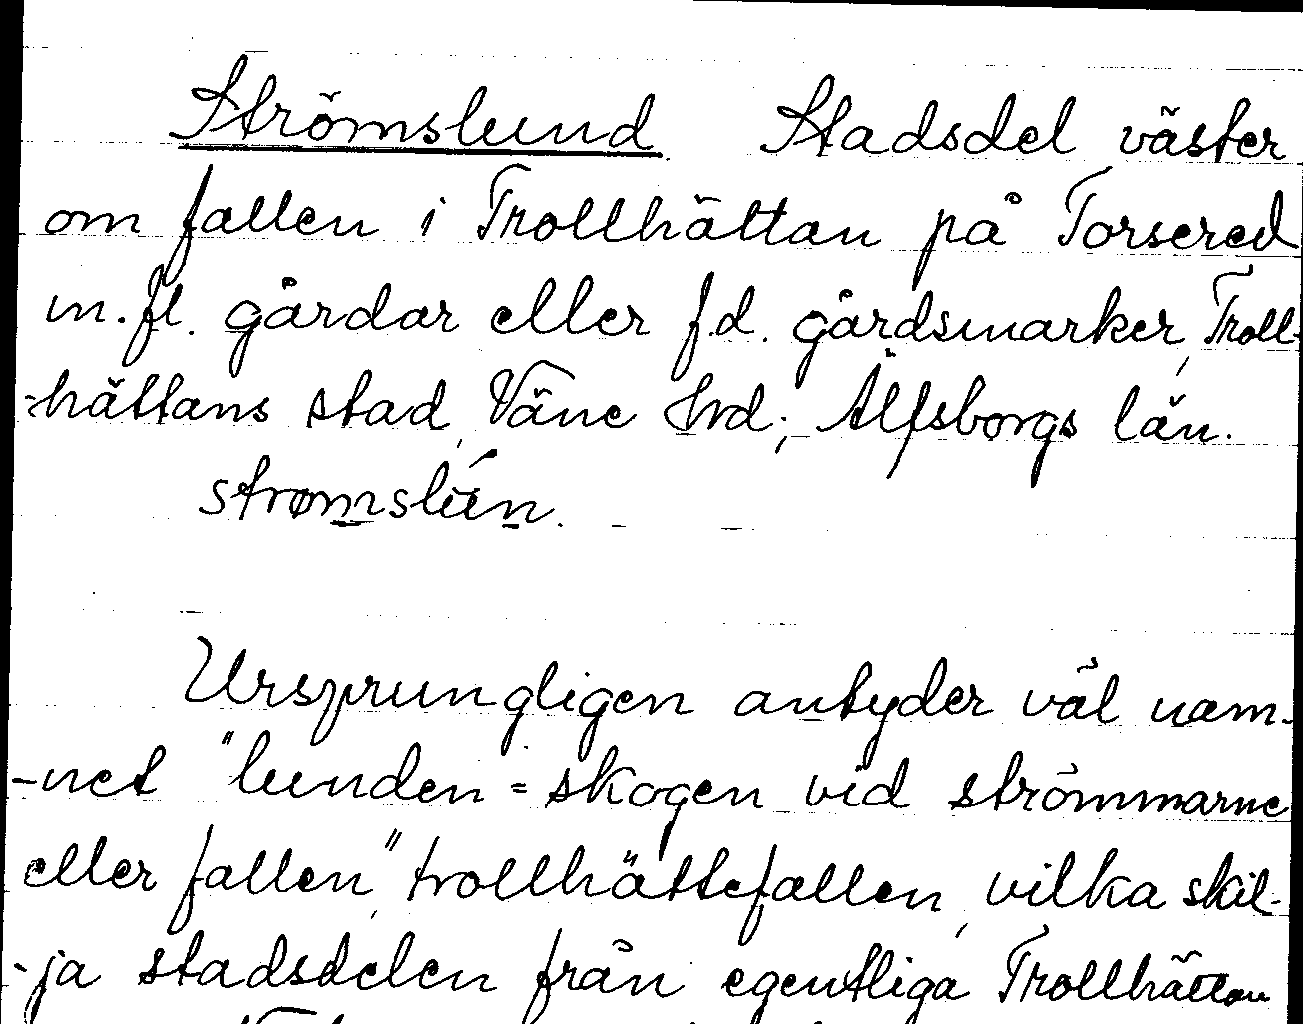 Strömslund. Stadsdel väster
om fallen i Trollhättan på Torsered
m.fl. gårdar eller f.d. gårdsmarker, Troll-
-hättans stad, Väne Hrd; Älfsborgs län.
Ursprungligen antyder väl nam-
-net "lunden = skogen vid strömmarne
eller fallen", trollhättefallen, vilka skil-
-ja stadsdelen från egentliga Trollhättan